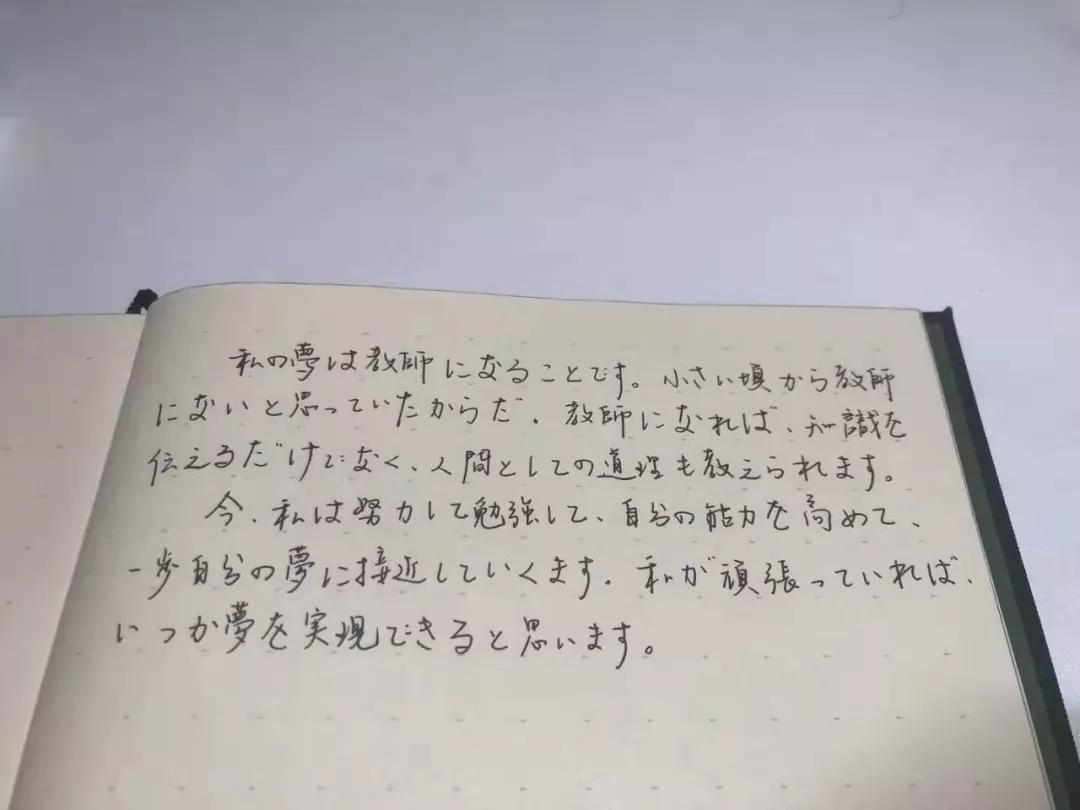 私の夢は教師になることです。小さい頃から教師
にないと思っていたからだ。教師になれば、知識を
伝えるだけでなく、人間としての道理も教えられます。
今、私は努力して勉強して、自分の能力を高めて、
一歩自分の夢に接近していくます。私が頑張っていれば、
いつか夢を実現できると思います。